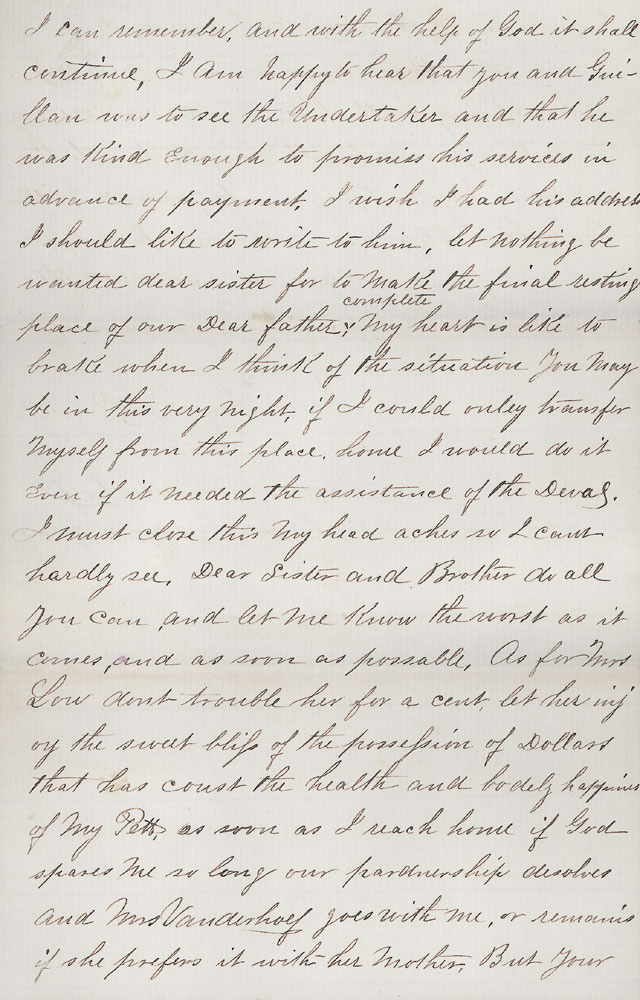 I can remember, and with the help of God it shall
continue, I Am happy to hear that you and Gui-
llan was to see the Undertaker and that he
was Kind Enough to promiss his services in
advance of payment, I wish I had his address
I should like to write to him, let nothing be
wanted dear sister for to Make the final resting
complete
place of our Dear father, My heart is like to
brake when I think of the situation You May
be in this very night, if I could onley transfer
Myself from this place. home I would do it
Even if it needed the assistance of the
I must close this My head aches so I cant
hardly see, Dear Sister and Brother do all
You can and let Me Know the worst as it
comes, and as soon as possable, As for Mrs
Low dont trouble her for a cent, let her inj
oy the sweet bliss of the possession of Dollars
that has coust the health and bodely happiness
of My as soon as I reach home if God
spares Me so long our pardnership desolves
and Mrs Vanderhoef goes with me, or remains
if she prefers it with her Mother, But Your